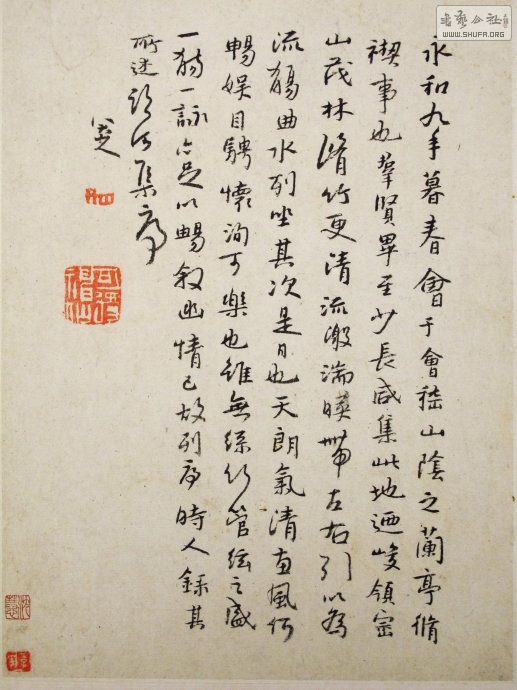 永和九年暮春會于會稽山陰之蘭亭脩
禊事也羣賢畢至少長咸集此地迺峻領崇
山茂林脩竹更清流激湍暎帶左右引以為
流觴曲水列坐其次是日也天朗氣清惠風和
暢娛目騁懷洵可樂也雖無絲竹管絃之盛
一觴一詠亦足以暢敘幽情已故列序時人錄其
所述臨河集序
八大
可得神仙
WWW.SHUFA.ORG